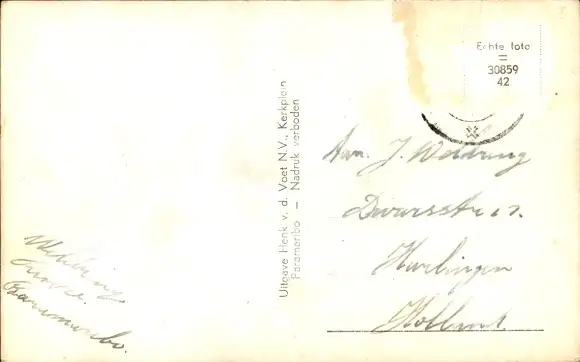 Echte foto
=
30859
42
Uitgave Henk v. d. Voet N.V., Kerkplein
Paramaribo — Nadruk verboden
Aan. J. Weldring
Dwarsstr
Harlingen
Holland.
Paramaribo.